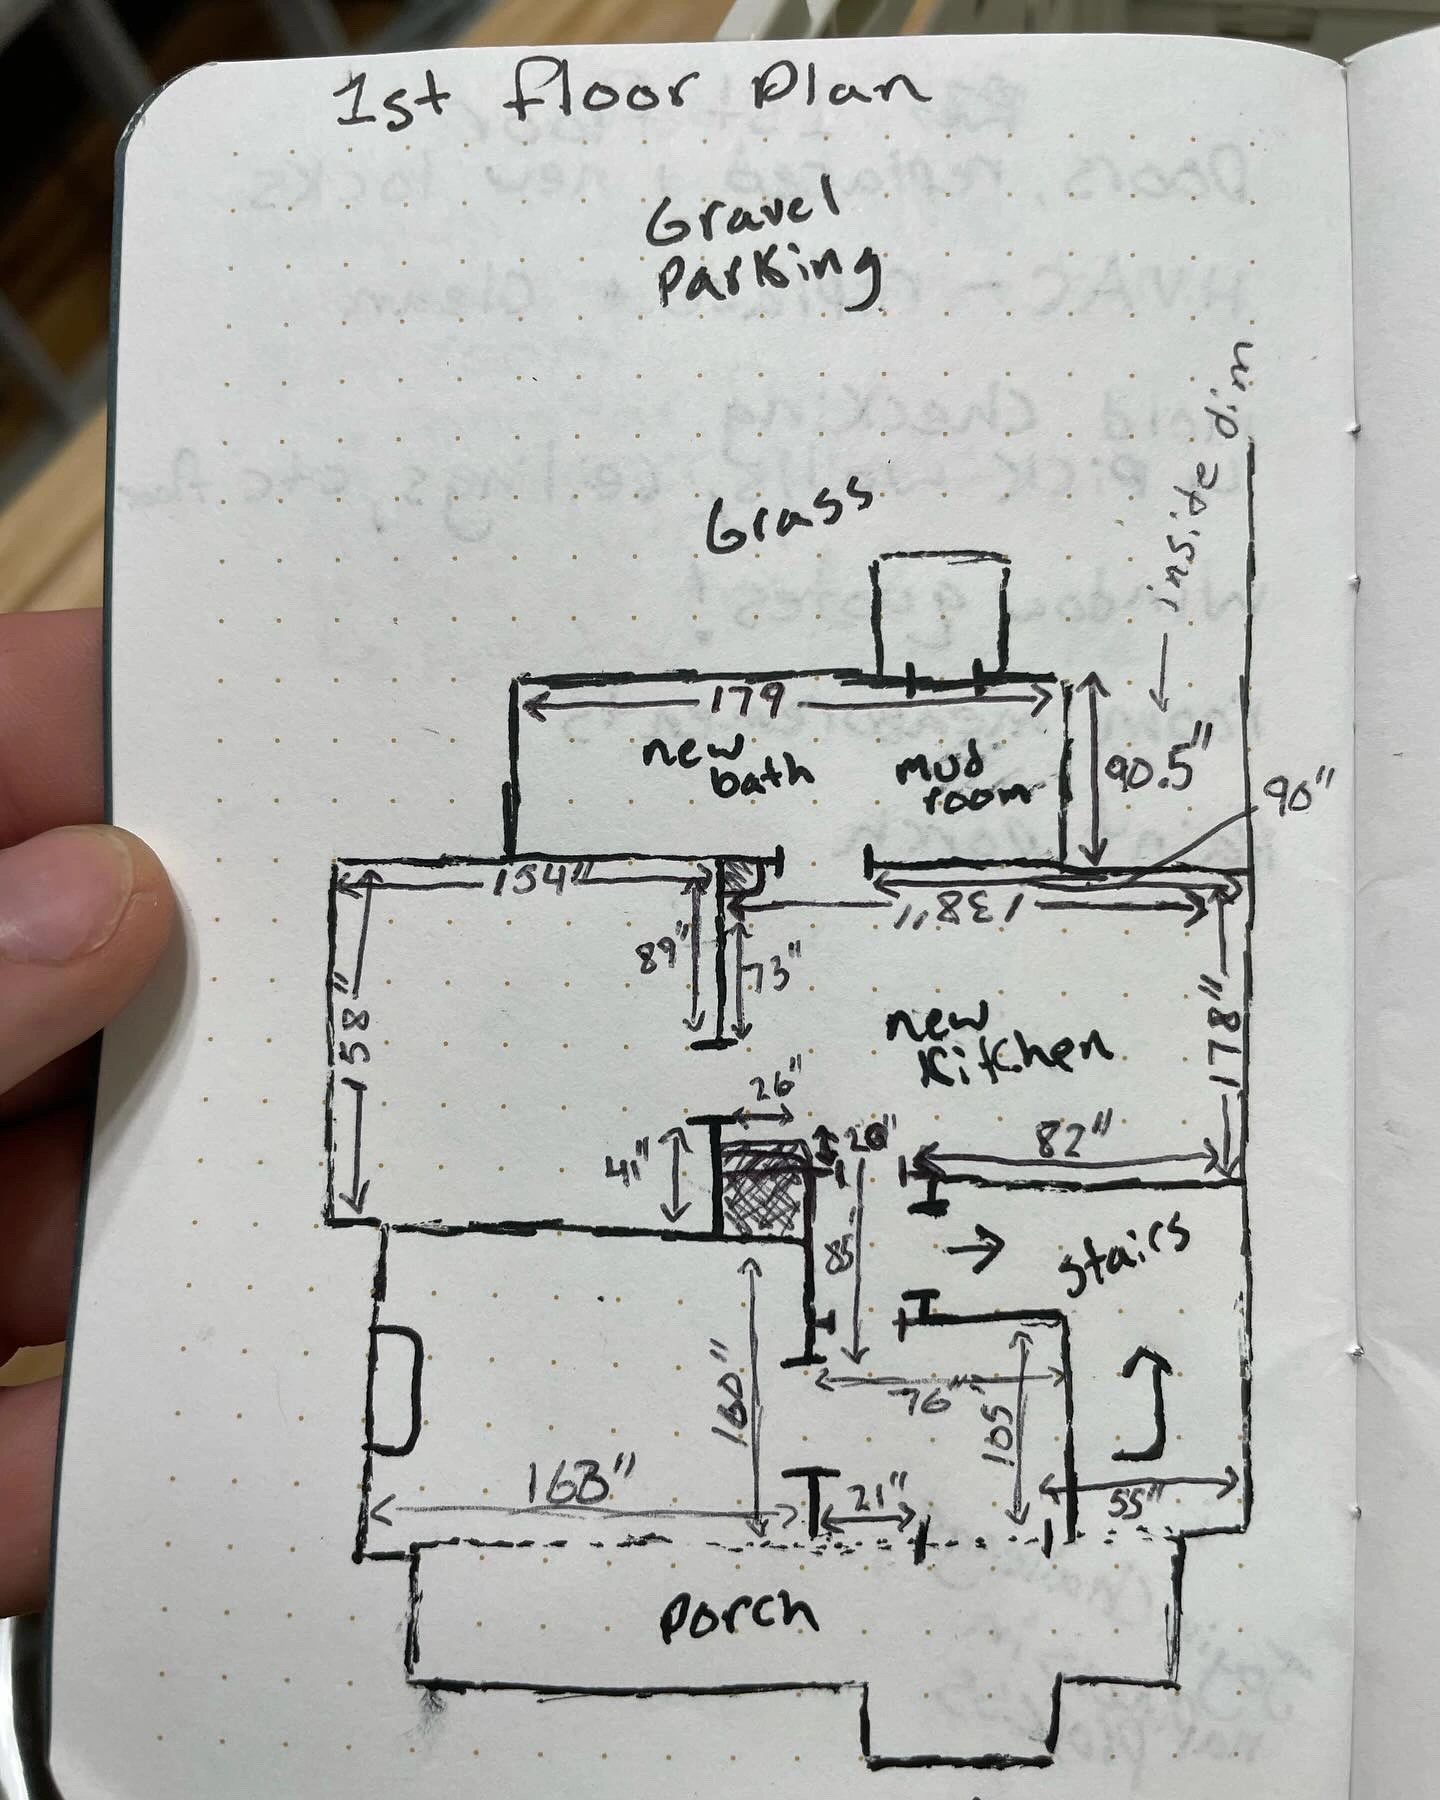 1st floor Plan
Gravel
Parking
Grass
insite dim
179
new
bath
Mud
room
90.5"
90"
154"
138"
89"
73"
158"
new
Kitchen
178"
26"
20"
82"
41"
85
stairs
160"
76"
105
168"
21"
55"
Porch